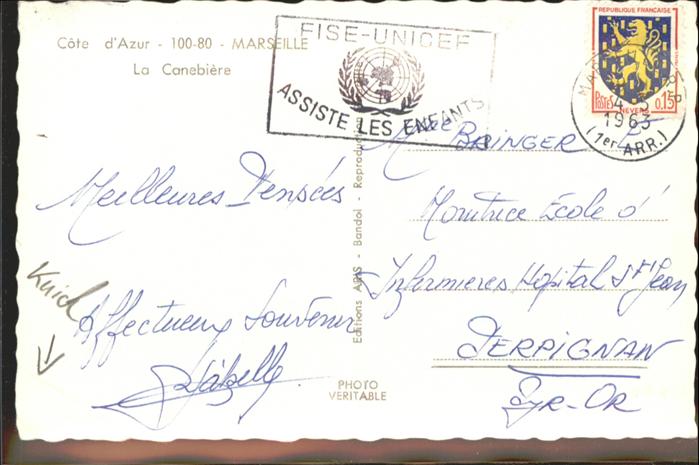 Côte d'Azur - 100-80 - MARSEILLE
La Canebière
FISE-UNICEF
ASSISTE LES ENFANTS
REPUBLIQUE FRANÇAISE
POSTES 0,15
NEVERS
1963
(1er ARR.)
Meilleures Pensées
Affectueux Souvenir
Kuick
Editions ARIS - Bandol - Reproduction
PHOTO
VERITABLE
BRINGER
Monitrice Ecole d'
Infirmieres Hopital St Jean
PERPIGNAN
Pyr-Or